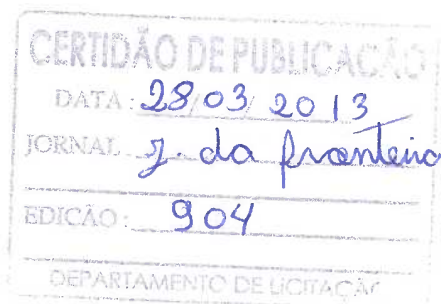 CERTIDÃO DE PUBLICAÇÃO
DATA: 28/03/2013
JORNAL J. da fronteira
EDIÇÃO: 904
DEPARTAMENTO DE LICITAÇÃO